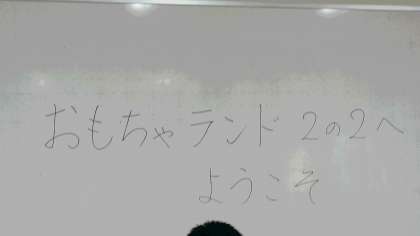 おもちゃランド2の2へ
ようこそ